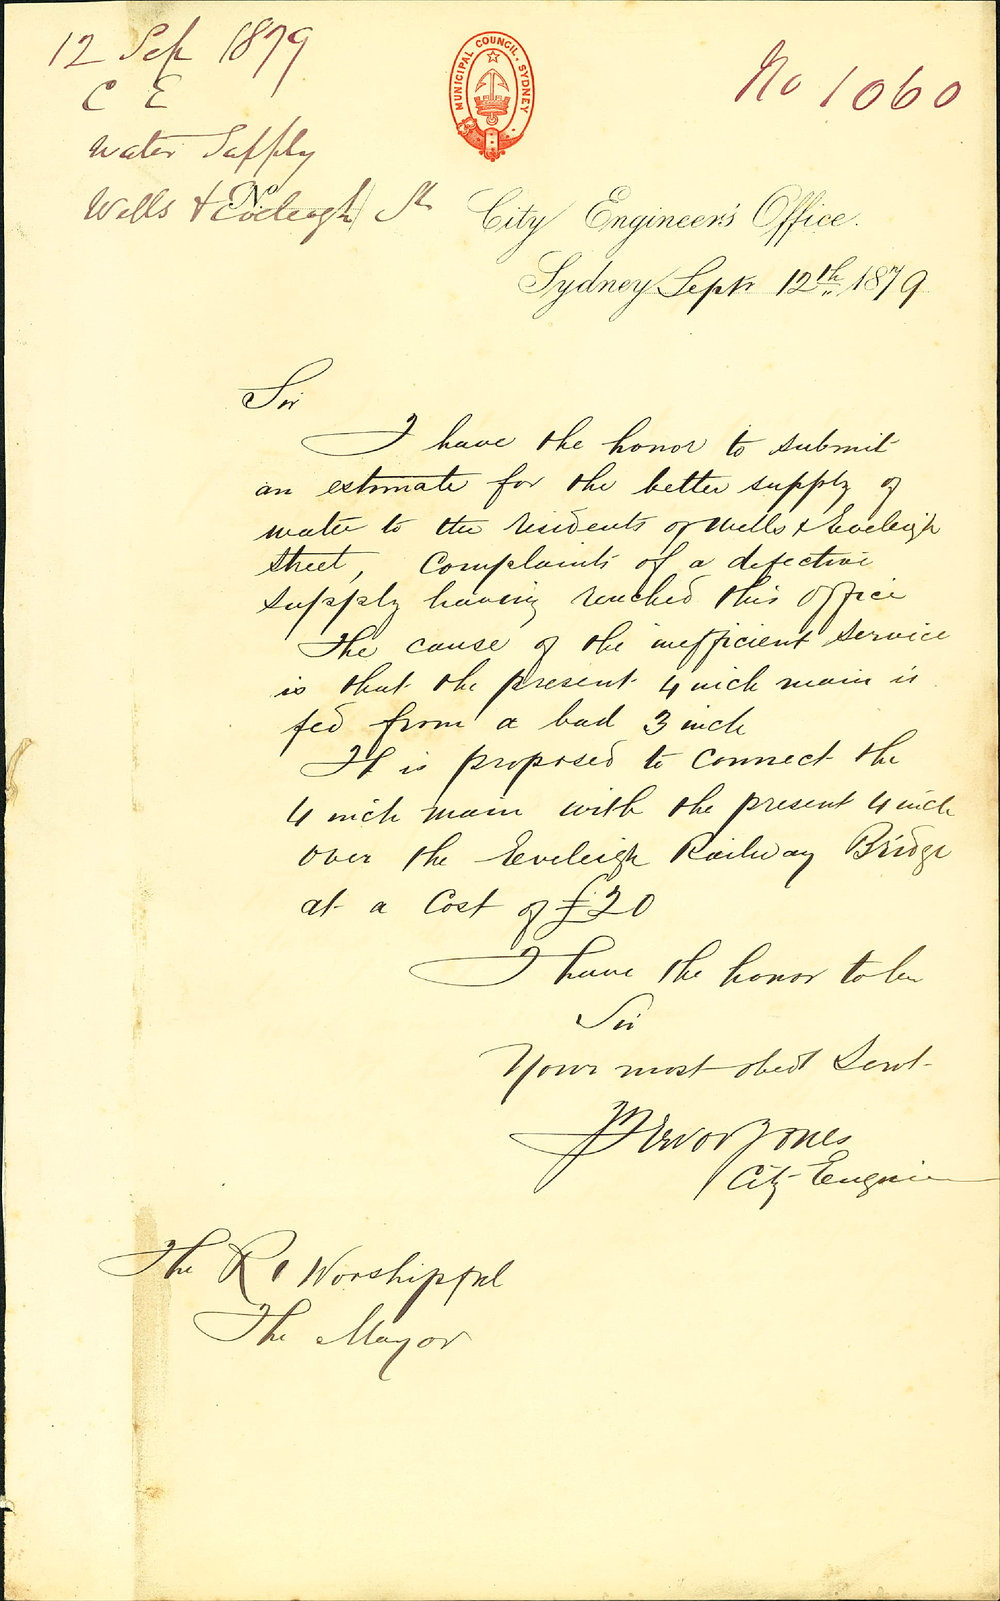 12 Sep 1879
C E
Water Supply
Wells & Eveleigh St
No
No 1060
MUNICIPAL COUNCIL, SYDNEY
City Engineer's Office.
Sydney Septr 12th 1879
Sir
I have the honor to submit
an estimate for the better supply of
water to the residents of Wells & Eveleigh
Street, Complaints of a defective
supply having reached this office
The cause of the inefficient service
is that the present 4 inch main is
fed from a bad 3 inch
It is proposed to connect the
4 inch main with the present 4 inch
over the Eveleigh Railway Bridge
at a Cost of £20
I have the honor to be
Sir
Your most obedt Servt
Trevor Jones
City Engineer
The Rt Worshipful
The Mayor